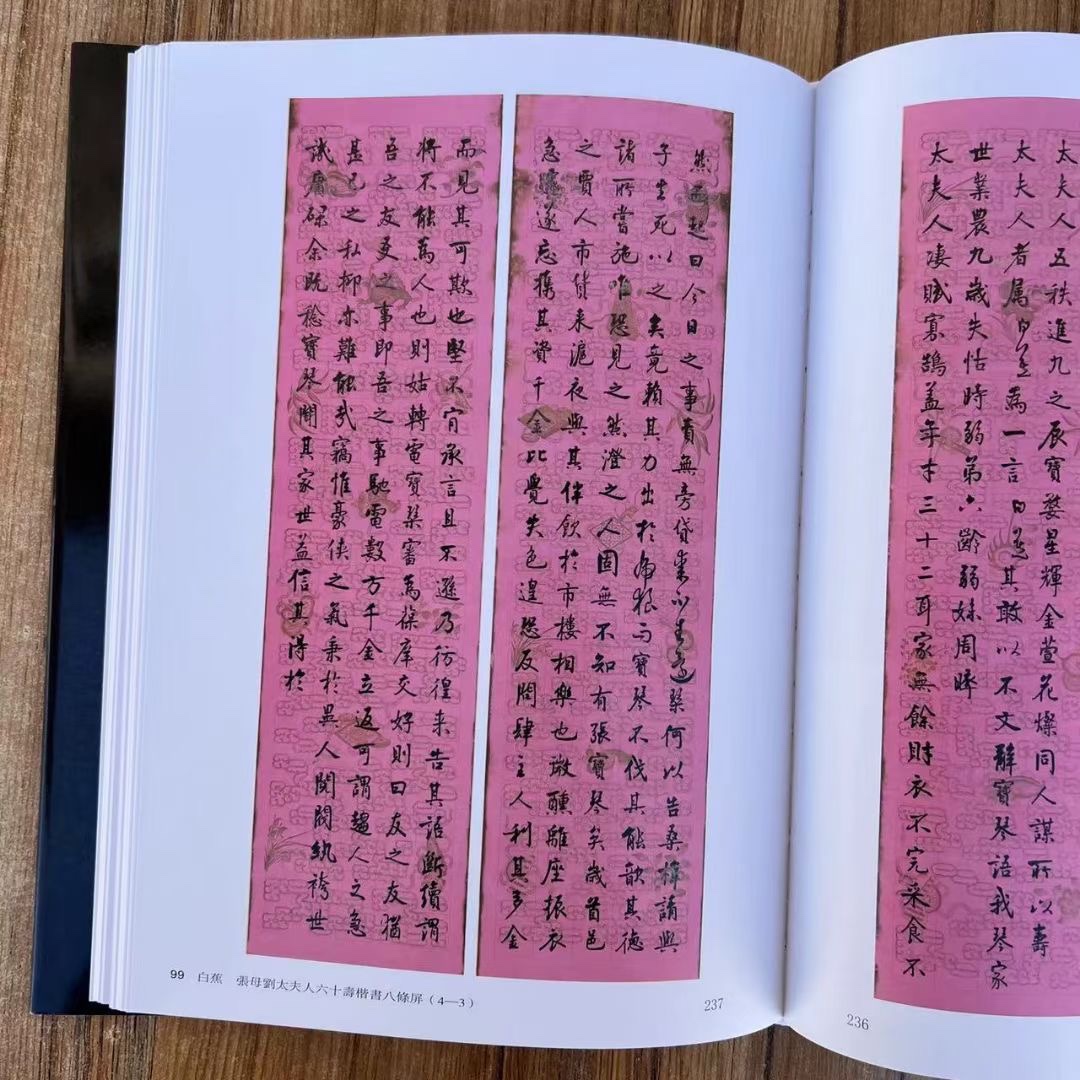 太夫人五秩進九之辰寶婺星輝金萱花燦同人謀所以壽
太夫人者属白蕉為一言白蕉其敢以不文辭寶琴語我琴家
世業農九歲失怙時弱弟六齡弱妹周晬
太夫人凄賦寡鵠蓋年才三十二耳家無餘財衣不完采食不
236
然起曰今日之事責無旁貸琹何以告桑梓請與
子生死以之矣竟賴其力出於寶琴不伐其能歆其德
諸所嘗施唯恐見之然澄之人固無不知有張寶琴矣歲首邑
之賈人市貨来滬夜與其伴飲於市樓相樂也微醺離座振衣
急遂忘携其資千金比覺失色遑恐反問肆主人利其多金
而見其可欺也堅不肎承言且不遜乃彷徨来告其語斷續謂
将不能為人也則姑轉電寶琹審為葆庠交好則曰友之友猶
吾之友友之事即吾之事馳電數方千金立返可謂趨人之急
甚己之私抑亦難能哉竊惟豪俠之氣秉於異人閥閱紈袴世
庸碌余既稔寶琴聞其家世益信其得於
99 白蕉 張母劉太夫人六十壽楷書八條屏（4—3）
237